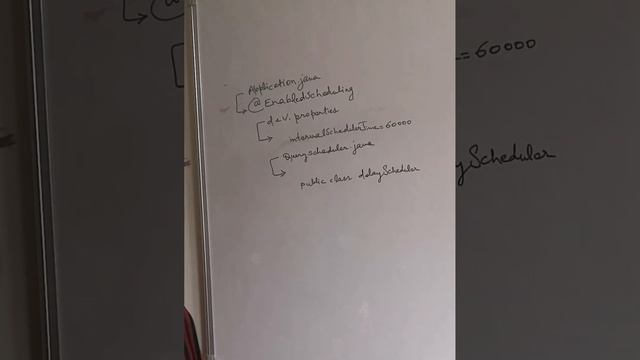 Application.java
@EnabledScheduling
dev.properties
intervalSchedulerTime=60000
Queryscheduler.java
public class delayScheduler